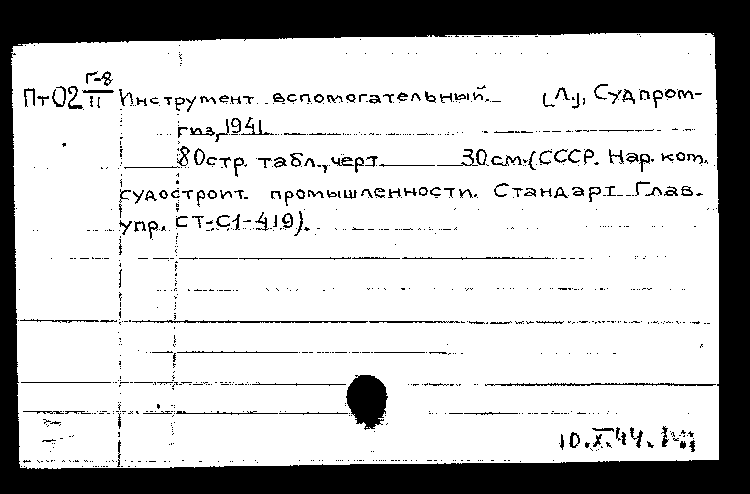 Пт02 Г-8/II Инструмент вспомогательный. [Л.], Судпром-
гиз, 1941.
80стр. табл., черт. 30см. (СССР. Нар. ком.
судостроит. промышленности. Стандарт Глав.
упр. СТ-С1-419).
10.X.44.